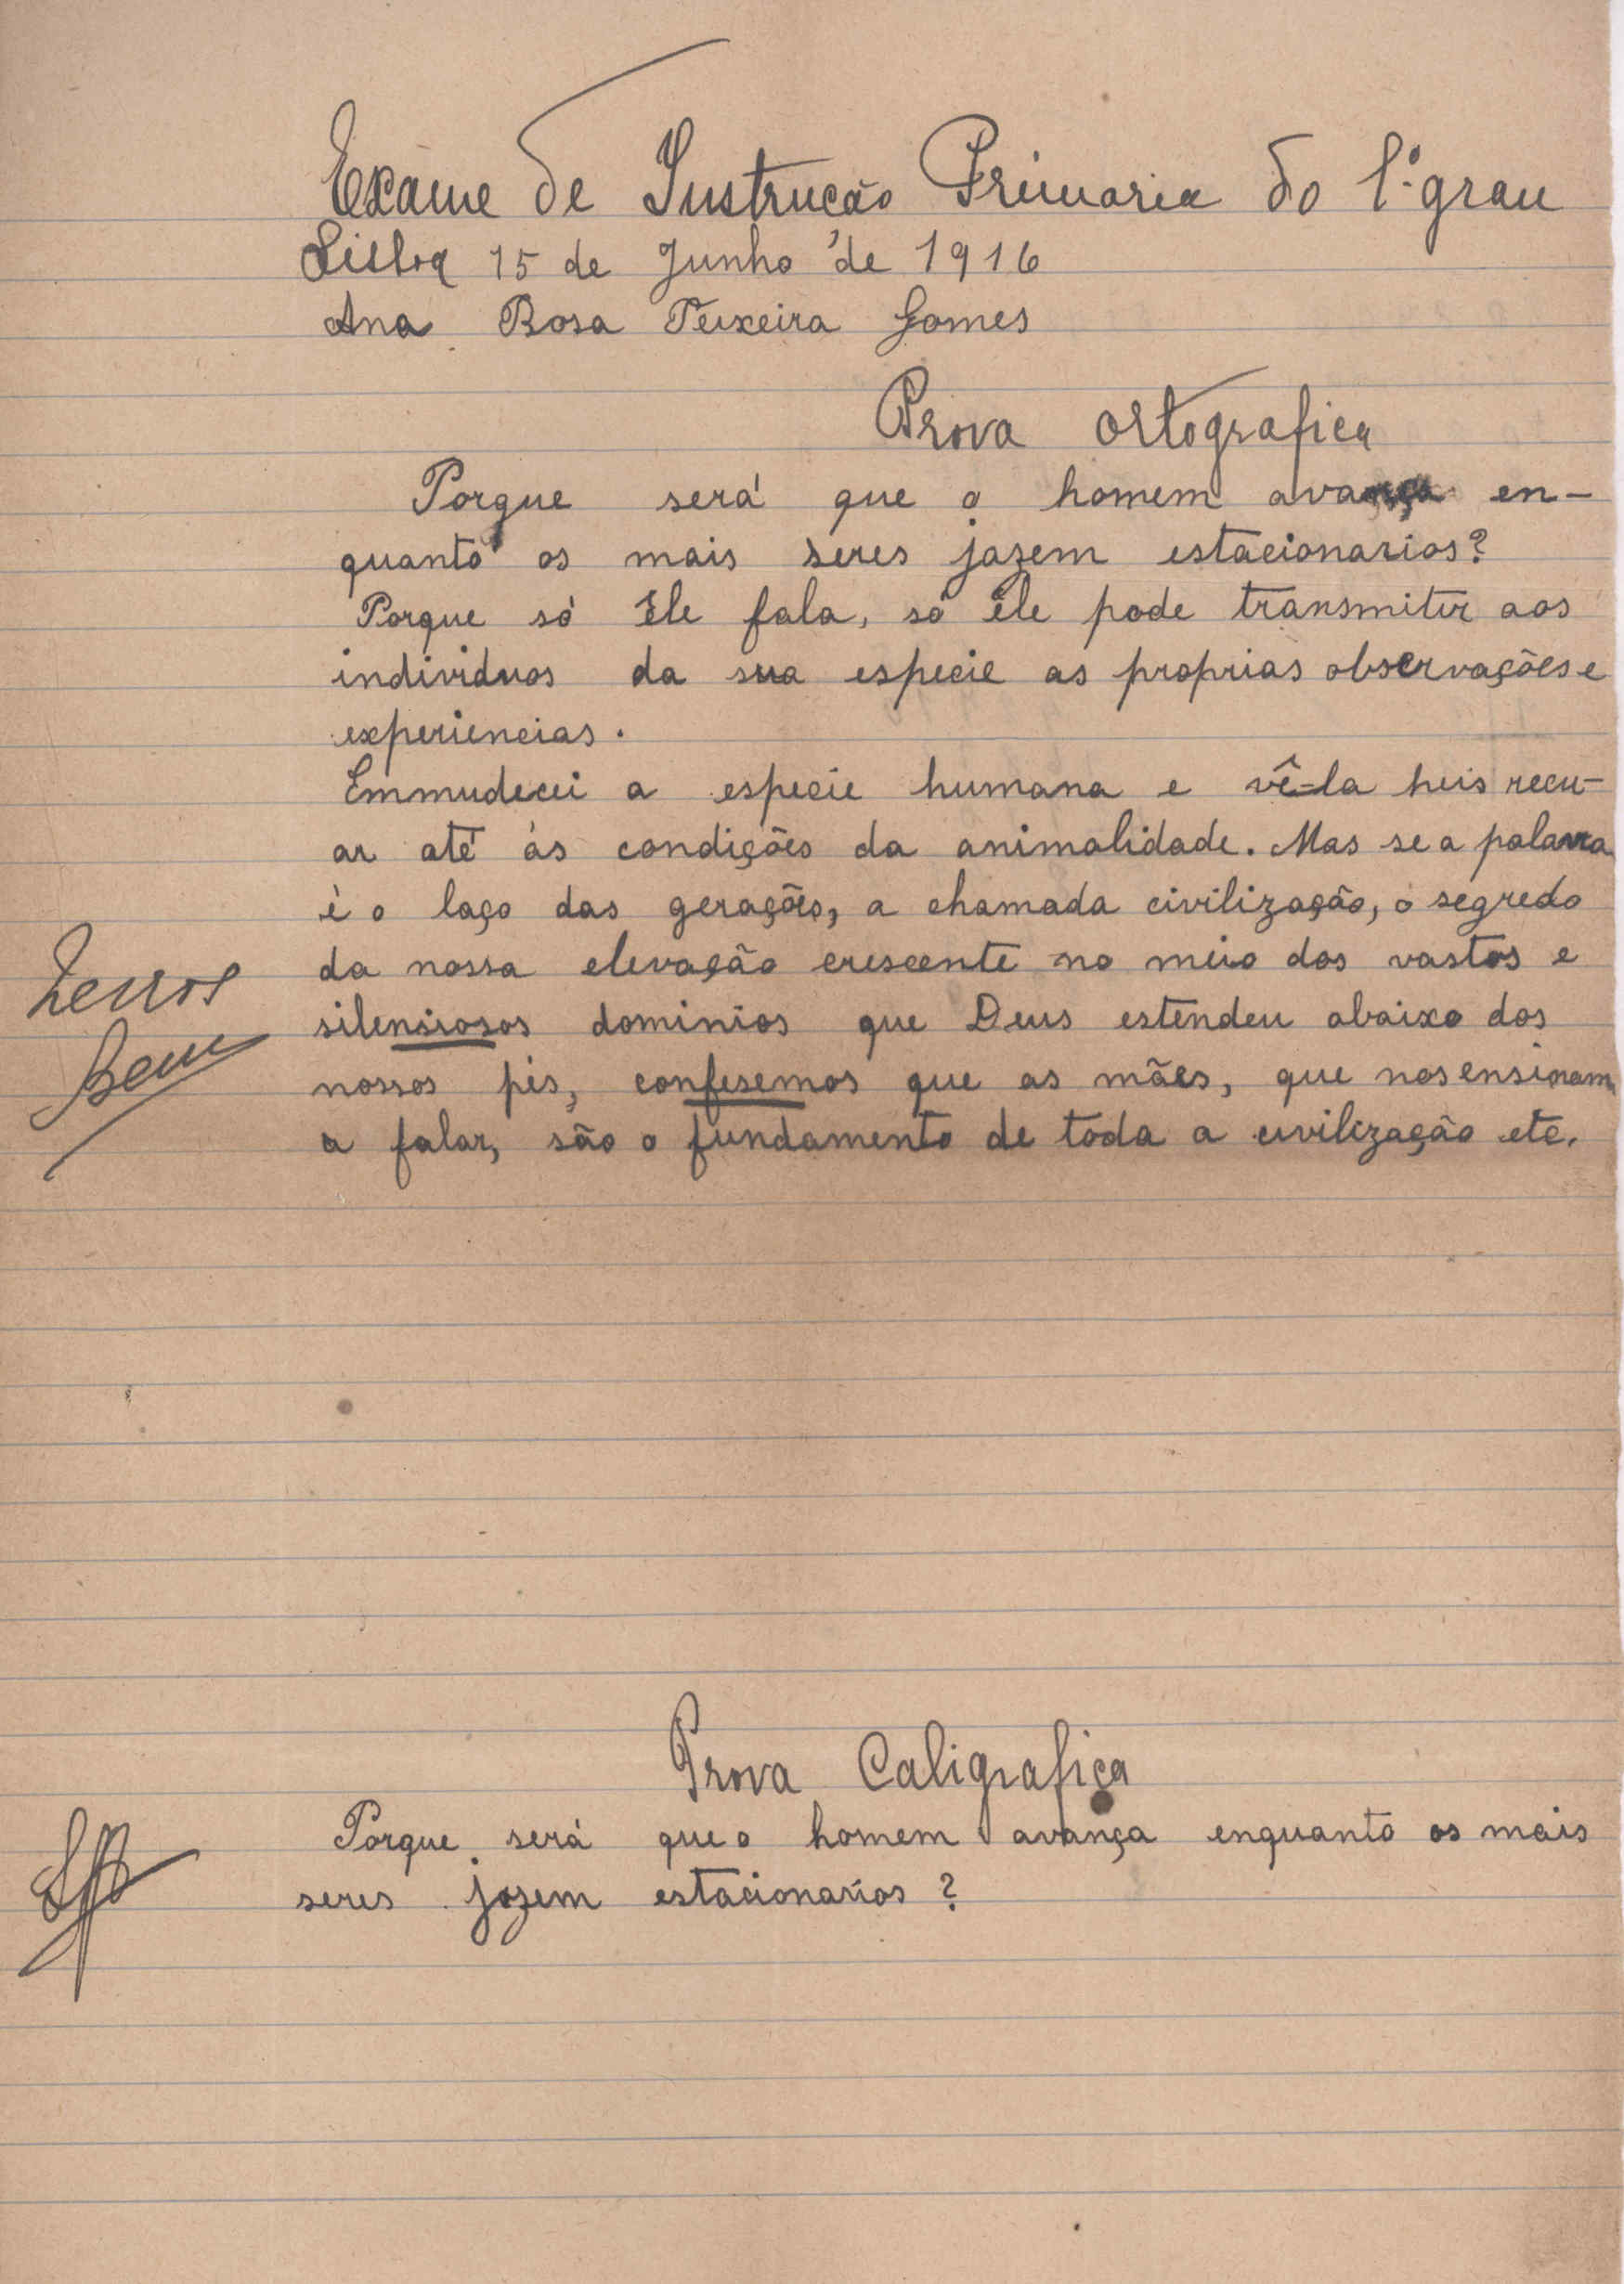 Exame de Instrucão Primaria do 1.º grau
Lisboa 15 de Junho de 1916
Ana Rosa Teixeira Gomes
Prova ortografica
Porque será que o homem avança en-
quanto os mais seres jazem estacionarios?
Porque só êle fala, só êle pode transmitir aos
individuos da sua especie as proprias observações e
experiencias.
Emmudecei a especie humana e vê-la heis recu-
ar até ás condições da animalidade. Mas se a palavra
é o laço das gerações, a chamada civilização, o segredo
da nossa elevação crescente no meio dos vastos e
silensiosos dominios que Deus estendeu abaixo dos
nossos pés, confesemos que as mães, que nos ensinam
a falar, são o fundamento de toda a civilização etc.
2 erros
Bem
Prova Caligrafica
Porque será que o homem avança enquanto os mais
seres jazem estacionarios?